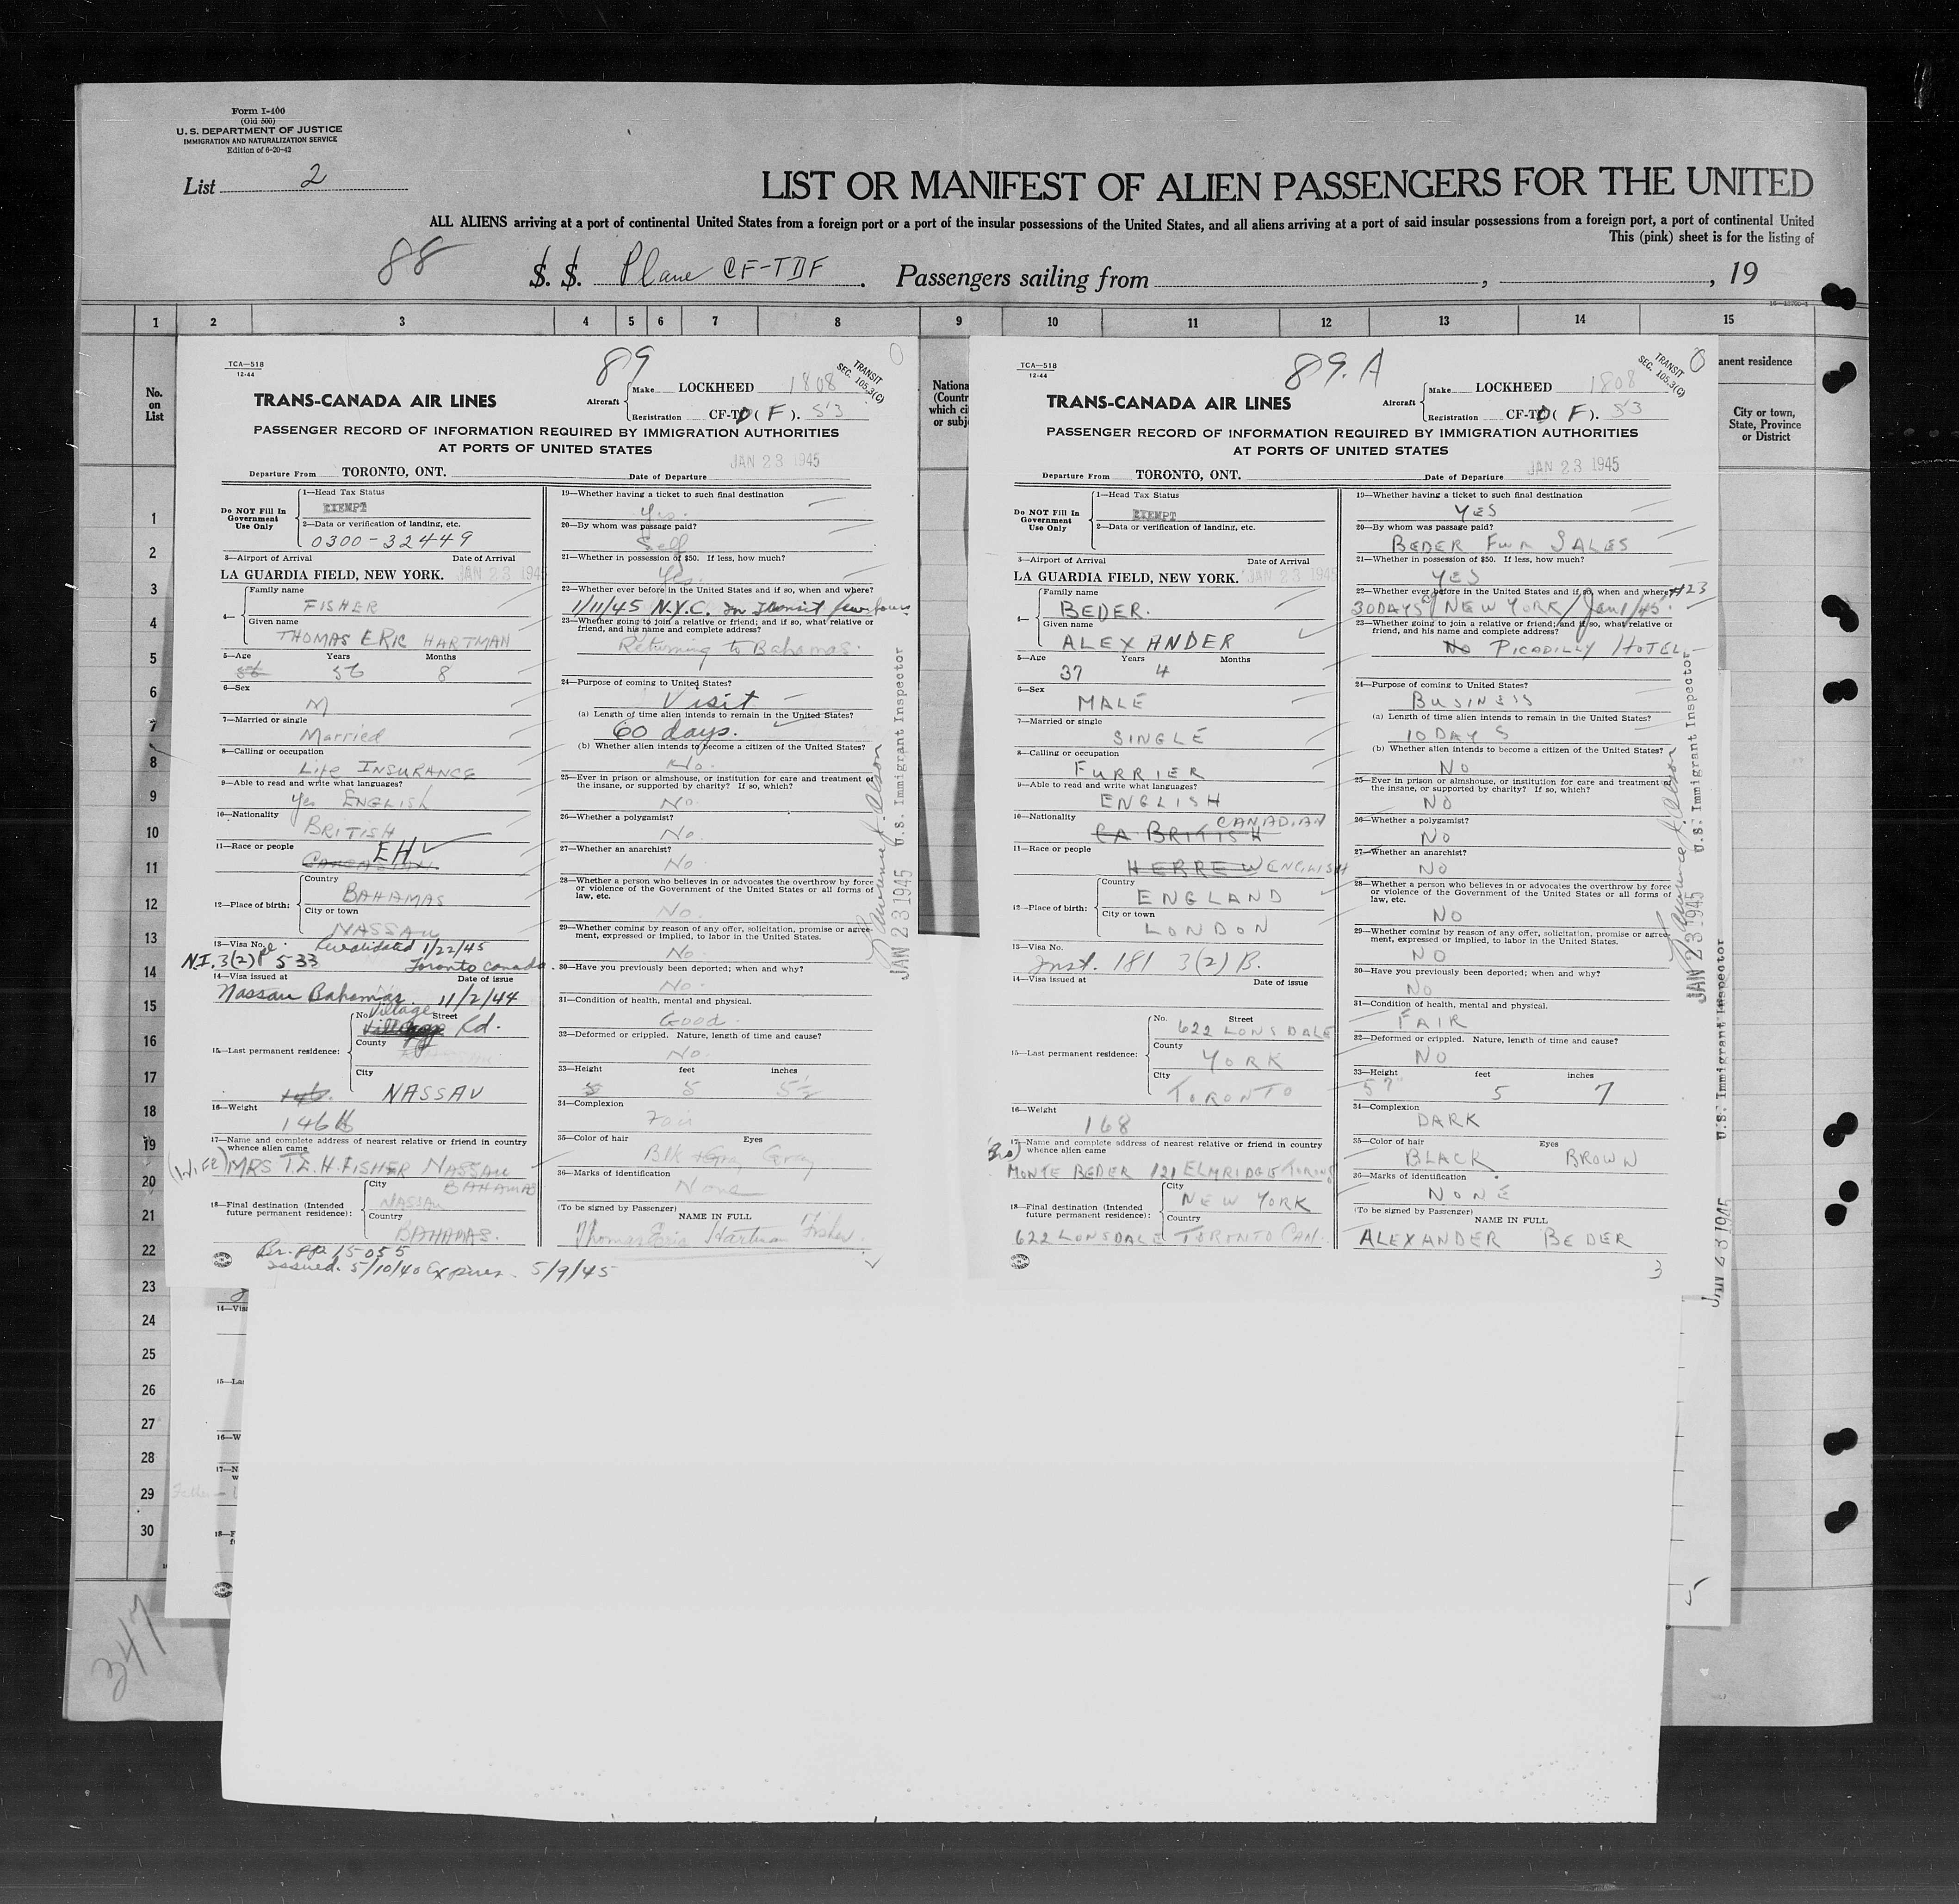 Form I-400
(Old 500)
U. S. DEPARTMENT OF JUSTICE
IMMIGRATION AND NATURALIZATION SERVICE
Edition of 6-20-42
List 2
LIST OR MANIFEST OF ALIEN PASSENGERS FOR THE UNITED
ALL ALIENS arriving at a port of continental United States from a foreign port or a port of the insular possessions of the United States, and all aliens arriving at a port of said insular possessions from a foreign port, a port of continental United
This (pink) sheet is for the listing of
88
S. S. Plane CF-TDF. Passengers sailing from , , 19
1 2 3 4 5 6 7 8 9 10 11 12 13 14 15
No.
on
List
Nationa
(Countr
which ci
or subj
anent residence
City or town,
State, Province
or District
1
2
3
4
5
6
7
8
9
10
11
12
13
14
15
16
17
18
19
20
21
22
23
24
25
26
27
28
29
30
347
TCA—518
12-44
89
TRANSIT
SEC. 105.3(C)
TRANS-CANADA AIR LINES
Aircraft
Make LOCKHEED 1808
Registration CF-TD ( F ). 53
PASSENGER RECORD OF INFORMATION REQUIRED BY IMMIGRATION AUTHORITIES
AT PORTS OF UNITED STATES
Departure From TORONTO, ONT. Date of Departure JAN 23 1945
Do NOT Fill In
Government
Use Only
1—Head Tax Status
EXEMPT
2—Data or verification of landing, etc.
0300-32449
3—Airport of Arrival Date of Arrival
LA GUARDIA FIELD, NEW YORK. JAN 23 1945
4—
Family name
FISHER
Given name
THOMAS ERIC HARTMAN
5—Age Years Months
56 56 8
6—Sex
M
7—Married or single
Married
8—Calling or occupation
Life INSURANCE
9—Able to read and write what languages?
Yes ENGLISH
10—Nationality
BRITISH
11—Race or people
EH
12—Place of birth:
Country
BAHAMAS
City or town
NASSAU
13—Visa No.
Revalidated 1/22/45
N.I. 3(2) 533 Toronto Canada.
14—Visa issued at Date of issue
Nassau Bahamas. 11/2/44
15—Last permanent residence:
No. Street
Village
Rd.
County
City
NASSAU
16—Weight
146
146 lb
17—Name and complete address of nearest relative or friend in country
whence alien came
(WIFE) MRS T.E.H. FISHER NASSAU
BAHAMAS
18—Final destination (Intended
future permanent residence):
City
NASSAU
Country
BAHAMAS.
Br. pp 15055
issued. 5/10/40 Expires. 5/9/45
19—Whether having a ticket to such final destination
Yes.
20—By whom was passage paid?
Self
21—Whether in possession of $50. If less, how much?
Yes.
22—Whether ever before in the United States and if so, when and where?
1/11/45 N.Y.C. In Transit few hours
23—Whether going to join a relative or friend; and if so, what relative or
friend, and his name and complete address?
Returning to Bahamas.
24—Purpose of coming to United States?
Visit
(a) Length of time alien intends to remain in the United States?
60 days.
(b) Whether alien intends to become a citizen of the United States?
No.
25—Ever in prison or almshouse, or institution for care and treatment of
the insane, or supported by charity? If so, which?
No.
26—Whether a polygamist?
No.
27—Whether an anarchist?
No.
28—Whether a person who believes in or advocates the overthrow by force
or violence of the Government of the United States or all forms of
law, etc.
No.
29—Whether coming by reason of any offer, solicitation, promise or agree-
ment, expressed or implied, to labor in the United States.
No.
30—Have you previously been deported; when and why?
No.
31—Condition of health, mental and physical.
Good.
32—Deformed or crippled. Nature, length of time and cause?
No.
33—Height feet inches
5 5 5½
34—Complexion
Fair
35—Color of hair Eyes
Blk Gray
36—Marks of identification
None
(To be signed by Passenger)
NAME IN FULL
Thomas Eric Hartman Fisher.
JAN 23 1945 U.S. Immigrant Inspector
TCA—518
12-44
89.A
TRANSIT
SEC. 105.3(C)
TRANS-CANADA AIR LINES
Aircraft
Make LOCKHEED 1808
Registration CF-TD ( F ). 53
PASSENGER RECORD OF INFORMATION REQUIRED BY IMMIGRATION AUTHORITIES
AT PORTS OF UNITED STATES
Departure From TORONTO, ONT. Date of Departure JAN 23 1945
Do NOT Fill In
Government
Use Only
1—Head Tax Status
EXEMPT
2—Data or verification of landing, etc.
3—Airport of Arrival Date of Arrival
LA GUARDIA FIELD, NEW YORK. JAN 23 1945
4—
Family name
BEDER.
Given name
ALEXANDER
5—Age Years Months
37 4
6—Sex
MALE
7—Married or single
SINGLE
8—Calling or occupation
FURRIER
9—Able to read and write what languages?
ENGLISH
10—Nationality
CANADIAN
CA BRITISH
11—Race or people
HEBREW ENGLISH
12—Place of birth:
Country
ENGLAND
City or town
LONDON
13—Visa No.
Inst. 181 3(2) B.
14—Visa issued at Date of issue
15—Last permanent residence:
No. Street
622 LONSDALE
County
YORK
City
TORONTO
16—Weight
168
17—Name and complete address of nearest relative or friend in country
whence alien came
(Bro) MONTE BEDER 121 ELMRIDGE TORONTO
18—Final destination (Intended
future permanent residence):
City
NEW YORK
Country
622 LONSDALE TORONTO CAN.
19—Whether having a ticket to such final destination
YES
20—By whom was passage paid?
BEDER FUR SALES
21—Whether in possession of $50. If less, how much?
YES
22—Whether ever before in the United States and if so, when and where?
30 DAYS NEW YORK / Jan 1/45.
23—Whether going to join a relative or friend; and if so, what relative or
friend, and his name and complete address?
No PICADILLY HOTEL
24—Purpose of coming to United States?
BUSINESS
(a) Length of time alien intends to remain in the United States?
10 DAYS
(b) Whether alien intends to become a citizen of the United States?
NO
25—Ever in prison or almshouse, or institution for care and treatment of
the insane, or supported by charity? If so, which?
NO
26—Whether a polygamist?
NO
27—Whether an anarchist?
NO
28—Whether a person who believes in or advocates the overthrow by force
or violence of the Government of the United States or all forms of
law, etc.
NO
29—Whether coming by reason of any offer, solicitation, promise or agree-
ment, expressed or implied, to labor in the United States.
NO
30—Have you previously been deported; when and why?
NO
31—Condition of health, mental and physical.
FAIR
32—Deformed or crippled. Nature, length of time and cause?
NO
33—Height feet inches
5 7" 5 7
34—Complexion
DARK
35—Color of hair Eyes
BLACK BROWN
36—Marks of identification
NONE
(To be signed by Passenger)
NAME IN FULL
ALEXANDER BEDER
3
JAN 23 1945 U.S. Immigrant Inspector
JAN 23 1945 U.S. Immigrant Inspector
14—Visa
15—La
16—W
17—N
w
18—F
f
5